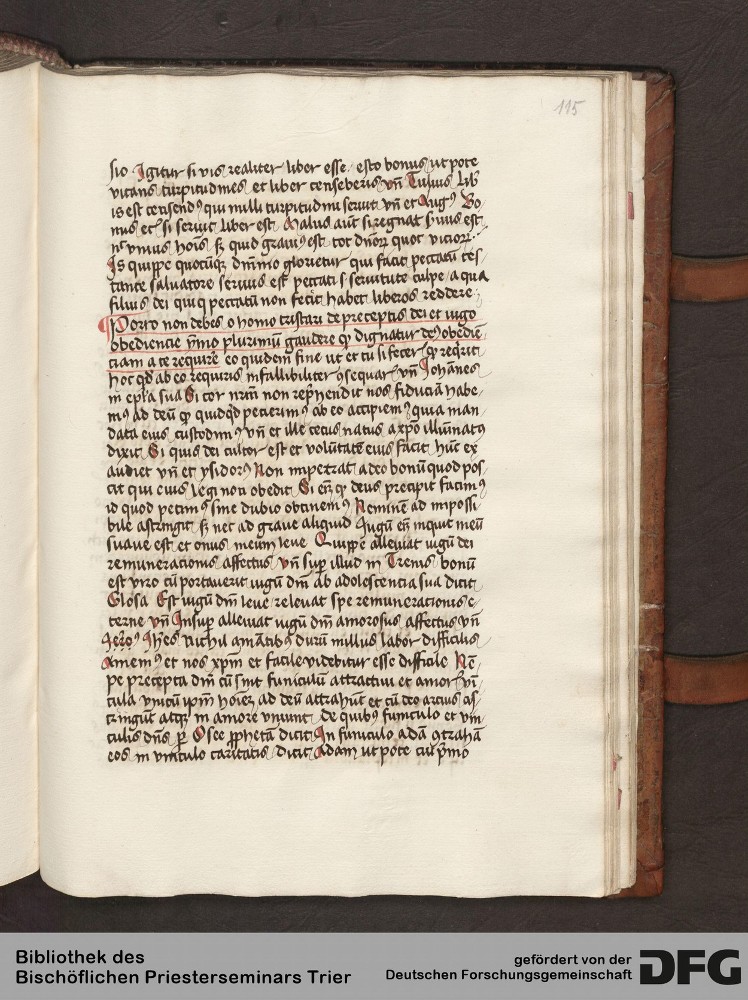 115
sio Igitur si vis realiter liber esse esto bonus ut pote
vitans turpitudines et liber censeberis vn̄ Tulius lib̄
is est censendꝰ qui nulli turpitudini seruit vn̄ et Augꝰ Bo
nus et si seruit liber est Malus aūt si regnat suus est
nͨ vnius hoīs sꝫ quid grauiꝰ est tot dn̄oꝝ quot vicioꝝ
Is quippe quocūqꝫ dn̄nio glorietur qui facit peccatū tes
tante saluatore seruus est peccati s seruitute culpe a qua
filius dei qui qͥ peccatū non fecit habet liberos reddere
Porro non debes o homo tristari de preceptis dei et iugo
obediencie ymo plurimū gaudere qꝫ dignatur deꝰ obedie
ciam a te requirē eo quidem fine ut et tu si fecerͥ qꝫ reqͥrit
hoc qd̄ ab eo requiris infallibiliter ꝯsequarͥ vn̄ Johānes
in ep̄la sua Si cor nr̄m non rep̄hendit nos fiduciā habe
mꝰ ad deū qꝫ quidqͥd petierimꝰ ab eo accipiemꝰ quia man
data eius custodimꝰ vn̄ et ille cecus natus a xp̄o illūinatꝰ
dixit Si quis dei cultor est et volūtatē eius facit hūc ex
audiet vn̄ et ysidorꝰ Non impetrat a deo bonū quod pos
cit qui eius legi non obedit Si em̄ qꝫ deus precipit facimꝰ
id quod petimꝰ sine dubio obtinemꝰ Neminē ad impossi
bile astringit sꝫ nec ad graue aliquid Iugū em̄ inquit meū
suaue est et onus meum leue Quippe alleuiat iugū dei
remuneracionis affectus vn̄ sup̄ illud in Trenis bonū
est viro cū portauerit iugū dn̄i ab adolescencia sua dicit
Glosa Est iugū dn̄i leue releuat spe remuneracionis e
terne vn̄ Insup̄ alleuiat iugū dn̄i amorosus affectus vn̄
Jeroꝰ Nichil amātibꝰ durū nullus labor difficilis
Amemꝰ et nos xp̄m et facile videbitur esse difficile Nē
pe precepta dn̄i cū sint funiculū attractiui et amorͥ vī
cula vnicū ip̄m hoīeꝫ ad deū attrahūt et cū deo arcius ꝯs
tringūt atqꝫ in amore vniunt de quibꝰ funiculo et vin
culis dn̄s ꝑ Osee ꝓphetā dicit In funiculo adā ꝯtrahā
eos in vinculo caritatis dicit Adam ut pote cū p̄mo
Bibliothek des
Bischöflichen Priesterseminars Trier
gefördert von der
Deutschen Forschungsgemeinschaft
DFG